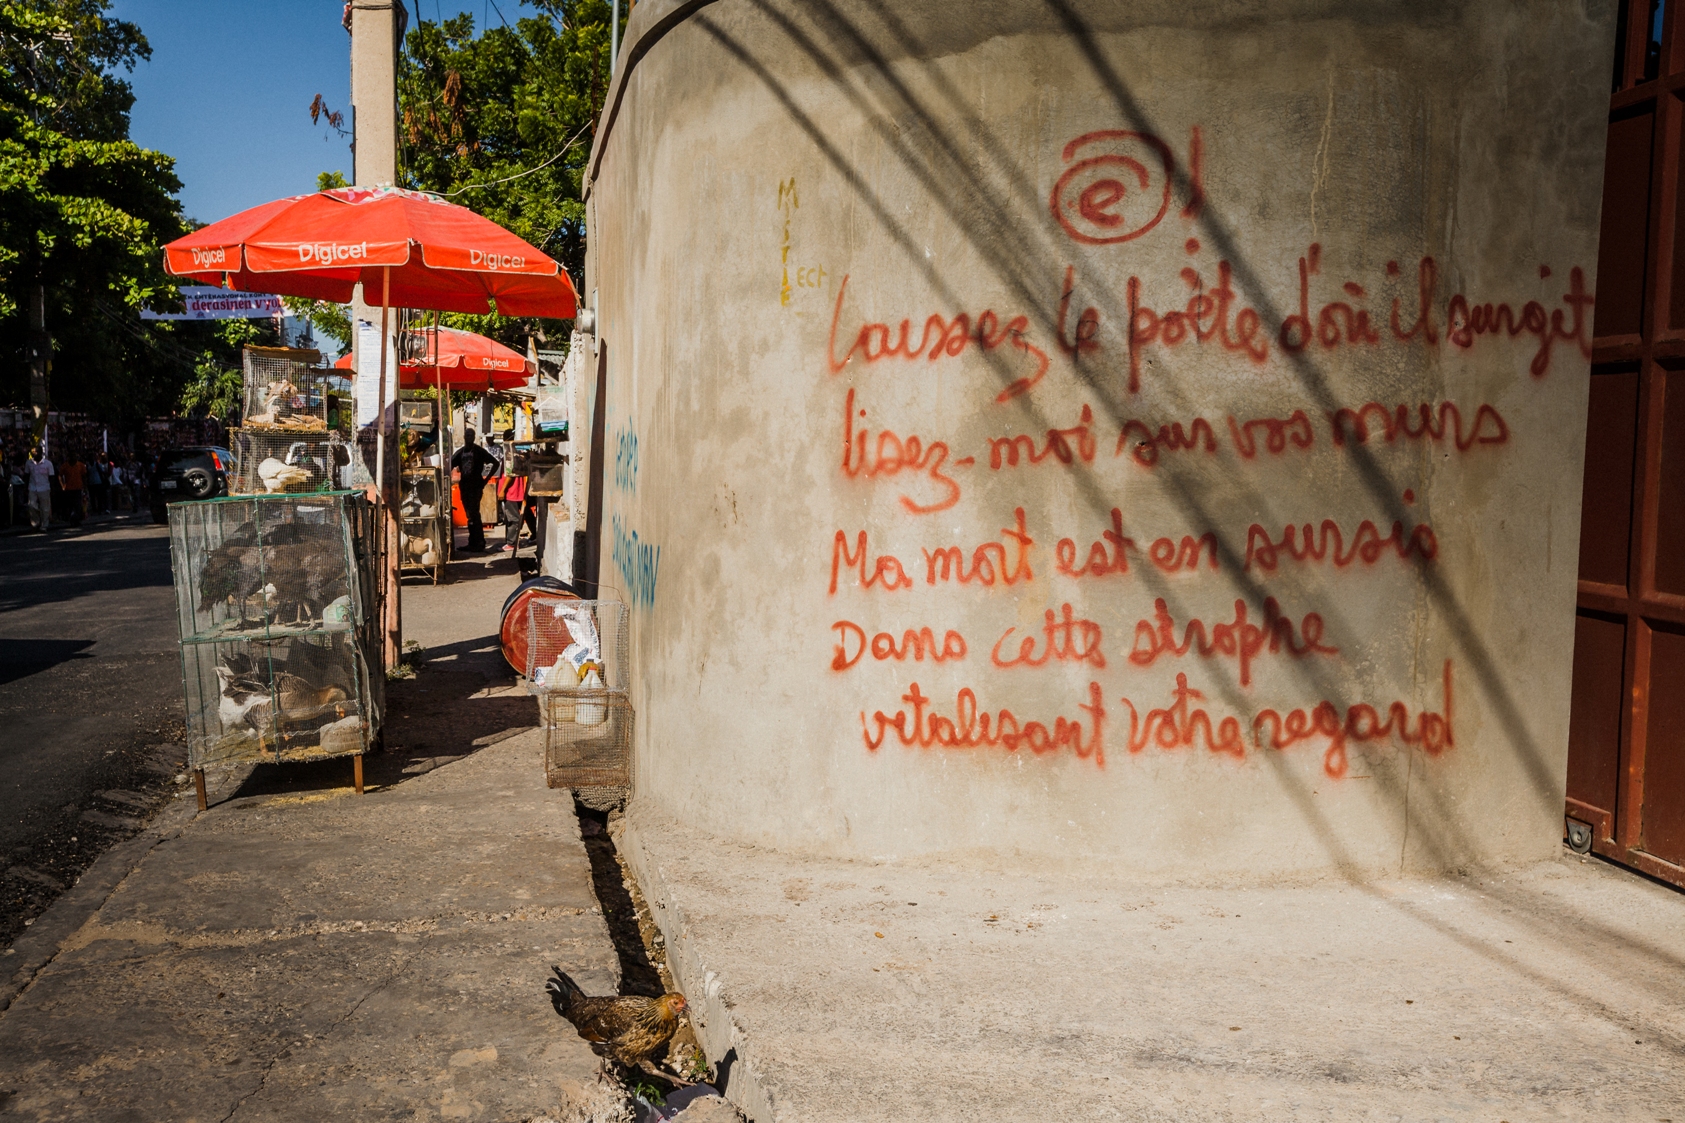 Digicel Digicel Digicel
derasinen v'yol
Digicel
MiZE
ECT
@!
Laissez le poète d'où il surgit
lisez-moi sur vos murs
Ma mort est en sursis
Dans cette strophe
vitalisant votre regard